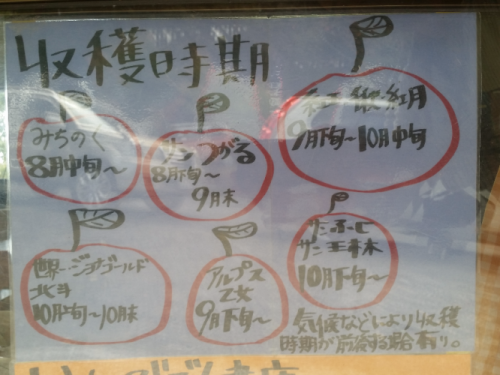 収穫時期
みちのく
8月中旬〜
つがる
8月下旬〜
9月末
紅月
9月下旬〜10月中旬
ジョナゴールド
北斗
10月上旬〜10月末
アルプス
乙女
9月下旬〜
サンふじ
サン王林
10月下旬〜
気候などにより収穫
時期が前後する場合有り。